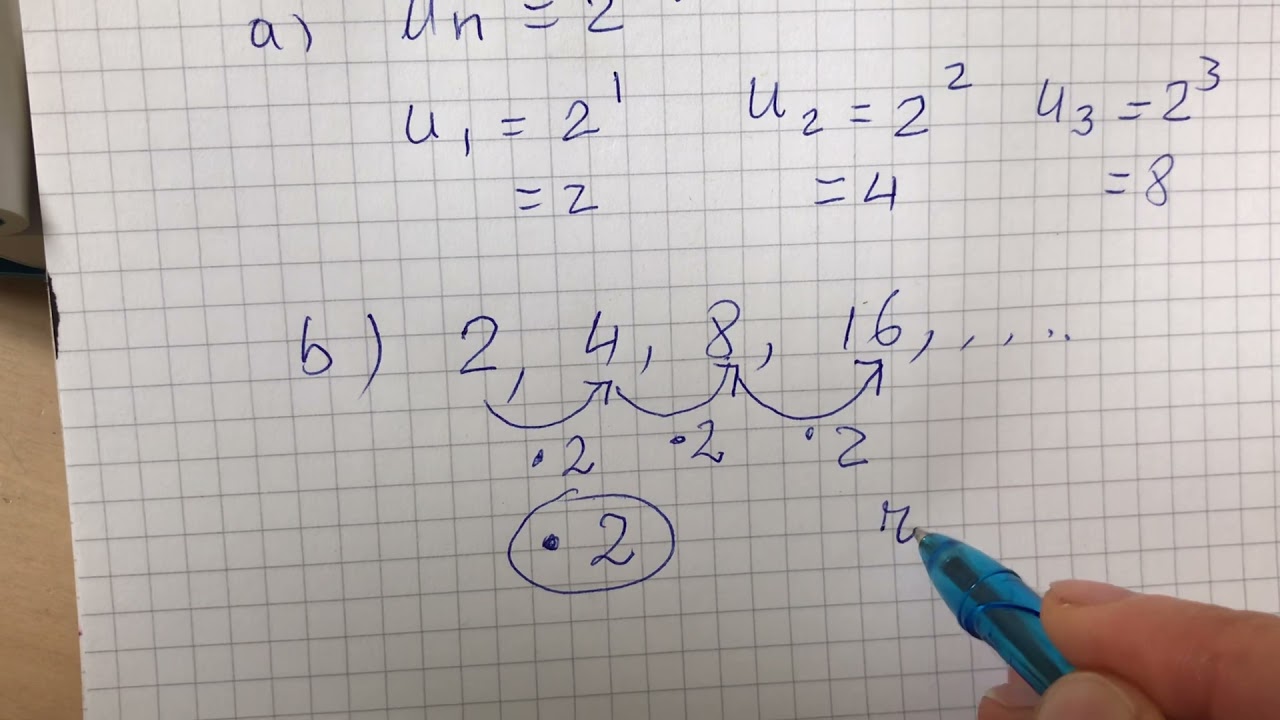 a) Un = 2
u₁ = 2¹ u₂ = 2² u₃ = 2³
= 2 = 4 = 8
b) 2, 4, 8, 16, , ...
·2 ·2 ·2
· 2
r